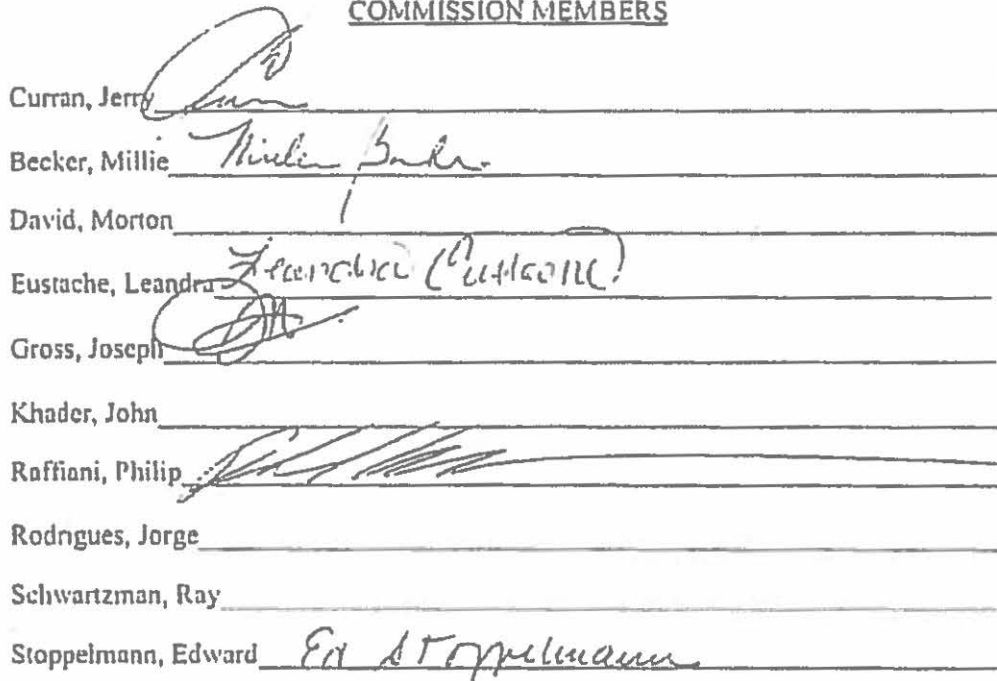 COMMISSION MEMBERS
Curran, Jerry
Becker, Millie
David, Morton
Eustache, Leandra Leandra Eustache
Gross, Joseph
Khader, John
Raffiani, Philip
Rodrigues, Jorge
Schwartzman, Ray
Stoppelmann, Edward Ed Stoppelmann